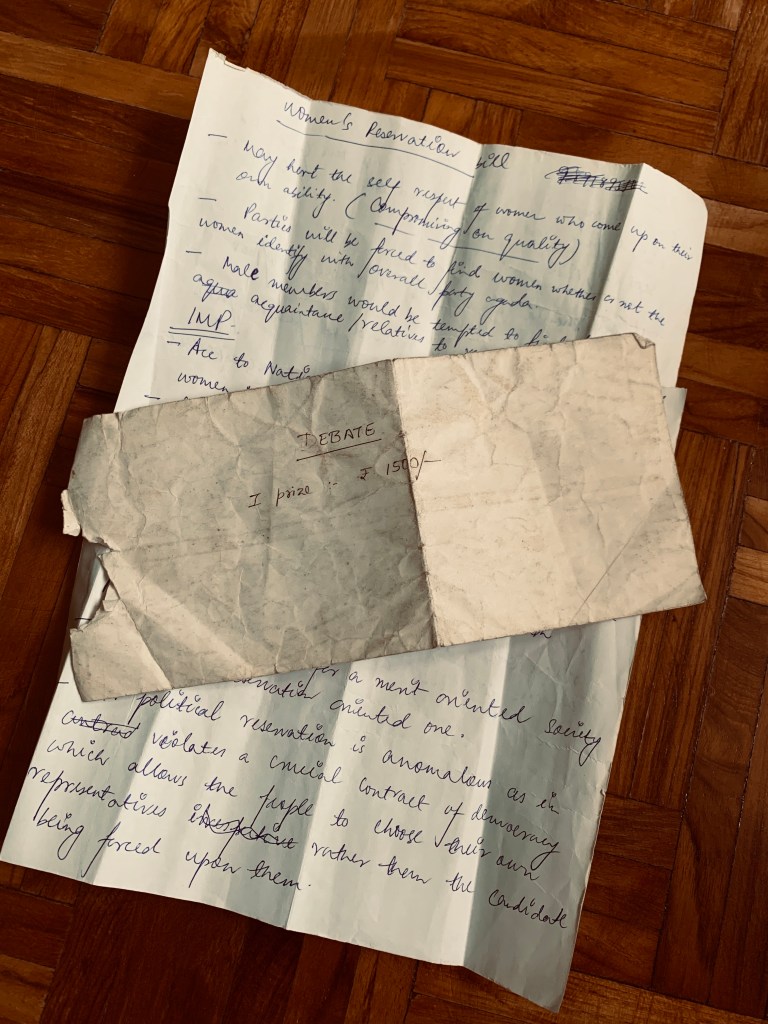 Women's Reservation bill
- May hert the self respect of women who come up on their
own ability. (Compromising on quality)
- Parties will be forced to find women whether or not the
women identify with overall party agenda
- Male members would be tempted to
acquaintane/relatives to
IMP.
- Acc to Nati
women
DEBATE
I prize :- ₹ 1500/-
for a merit oriented society
oriented one.
political reservation is anomalous as in
violates a crucial contract of democracy
which allows the people to choose their own
representatives rather them the candidate
being forced upon them.